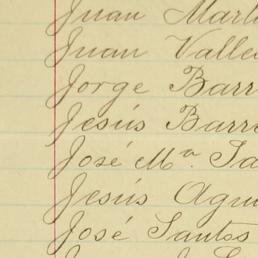 Juan Mart
Juan Valle
Jorge Barr
Jesús Barr
José Mª. Sa
Jesús Agu
José Santos